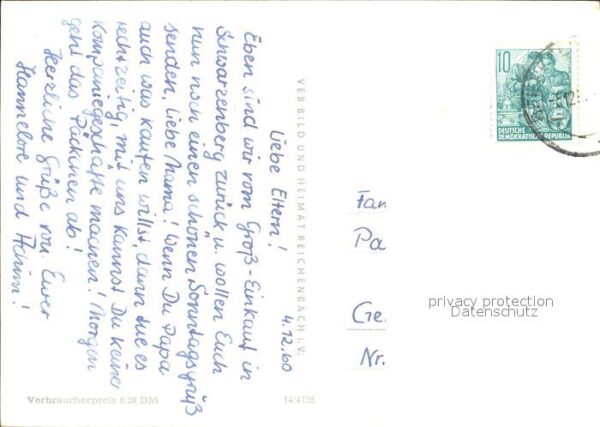 4.12.60
Liebe Eltern!
Eben sind wir vom Groß-Einkauf in
Schwarzenberg zurück u. wollen Euch
nun noch einen schönen Sonntagsgruß
senden. Liebe Mama! Wenn Du Papa
auch was kaufen willst, dann tue es
rechtzeitig, mit uns kannst Du keine
Kompaniegeschäfte machen! Morgen
geht das Päckchen ab!
Herzliche Grüße von Euer
Hannelore und Achim!
VEB BILD UND HEIMAT REICHENBACH I. V.
Verbraucherpreis 0,20 DM
14/4135
10
DEUTSCHE
DEMOKRATISCHE REPUBLIK
Fam
Pa
Ge
Nr.
privacy protection
Datenschutz